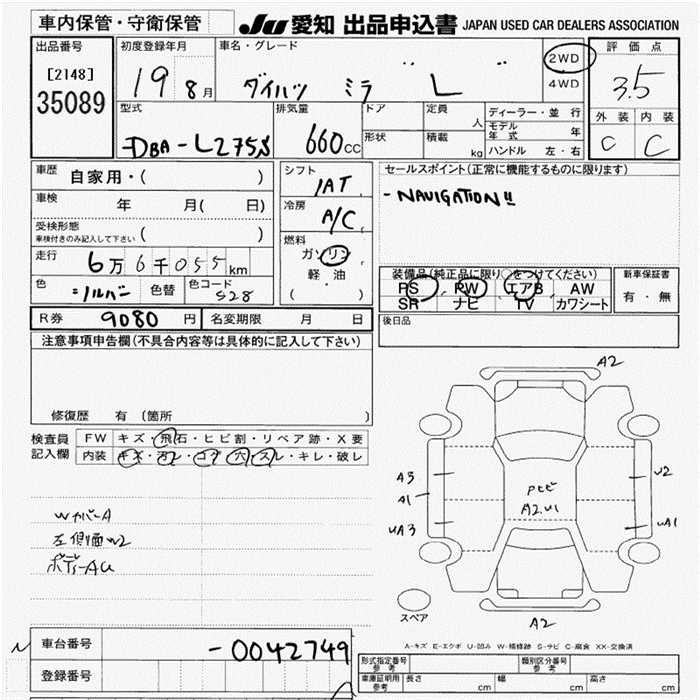 車内保管・守衛保管
JU 愛知 出品申込書 JAPAN USED CAR DEALERS ASSOCIATION
出品番号
[2148]
35089
初度登録年月
19 8月
車名・グレード
ダイハツ ミラ L
2WD
4WD
評価点
3.5
外装 内装
C C
型式
-DBA-L275S
排気量
660cc
ドア
形状
定員
人
積載
kg
ディーラー・並行
モデル年式 年
ハンドル 左・右
車歴
自家用・( )
車検
年 月( 日)
受検形態
車検付きのみ記入して下さい ( )
走行
6万6千055km
色
シルバー
色替
色コード
S28
シフト
1AT
冷房
A/C
燃料
ガソリン
軽油
( )
セールスポイント(正常に機能するものに限ります)
- NAVIGATION!!
装備品(純正品に限り○をつけてください)
PS PW エアB AW
SR ナビ TV カワシート
新車保証書
有・無
R券 9080円 名変期限 月 日
後日品
注意事項申告欄(不具合内容等は具体的に記入して下さい)
修復歴 有(箇所 )
検査員記入欄
FW キズ・飛石・ヒビ割・リペア跡・X要
内装 キズ・汚レ・コゲ・穴・スレ・キレ・破レ
WカバーA
左側面W2
ボディーAU
A2
A3
A1
UA3
U2
UA1
A2.U1
A2
スペア
A-キズ E-エクボ U-凹み W-補修跡 S-サビ C-腐食 XX-交換済
車台番号
-0042749
登録番号
型式指定番号 参考
類別区分番号 参考
車庫証明用 参考
長さ cm
幅 cm
高さ cm